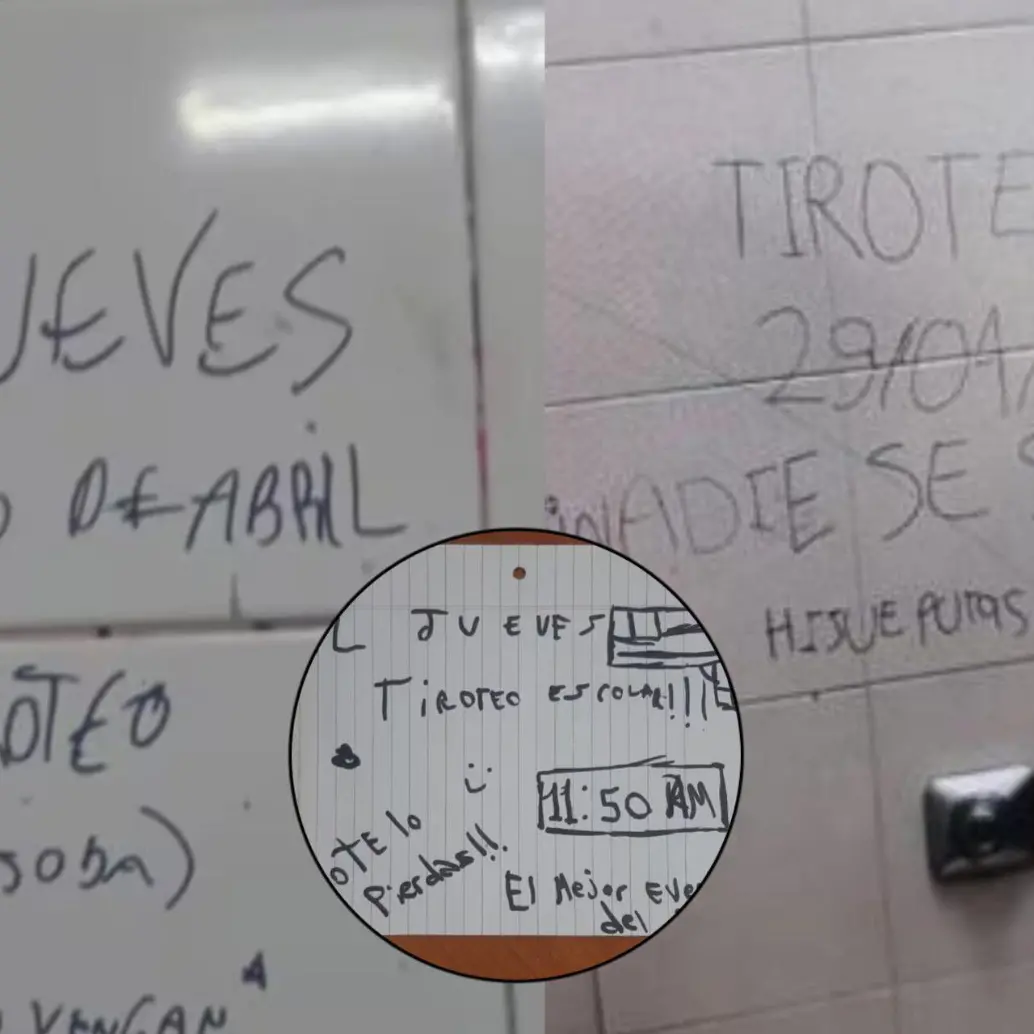 UEVES
DE ABRIL
OTEO
VENGAN
TIROTE
29/04/
NADIE SE S
HIJUEPUTAS
L JUEVES
TiROTEO ESCOLAR!!!
:)
11:50 AM
OTE lo
pierdas!!!
El Mejor Eve
del